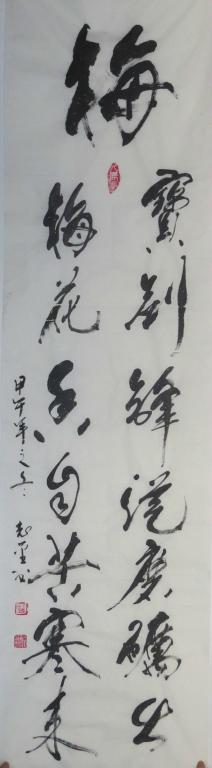 梅
寶劍鋒從磨礪出
梅花香自苦寒来
甲午年之冬